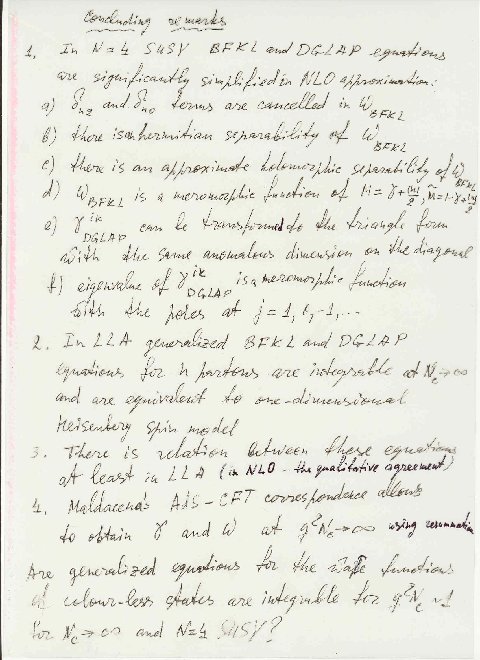 Concluding remarks
1. In N=4 SUSY BFKL and DGLAP equations
are significantly simplified in NLO approximation:
a) δn2 and δn0 terms are cancelled in ω BFKL
b) there is a hermitian separability of ω BFKL
c) there is an approximate holomorphic separability of ω BFKL
d) ω BFKL is a meromorphic function of M = γ + |n|/2, M̃ = 1-γ + |n|/2
e) γ^ik DGLAP can be transformed to the triangle form
with the same anomalous dimension on the diagonal
f) eigenvalue of γ^ik DGLAP is a meromorphic function
with the poles at j = 1, 0, -1, ...
2. In LLA generalized BFKL and DGLAP
equations for n partons are integrable at Nc→∞
and are equivalent to one-dimensional
Heisenberg spin model
3. There is relation between these equations
at least in LLA (in NLO - the qualitative agreement)
4. Maldacena's AdS-CFT correspondence allows
to obtain γ and ω at g²Nc→∞ using resummation
Are generalized equations for the wave functions
of colour-less states are integrable for g²Nc ~1
for Nc→∞ and N=4 SUSY?